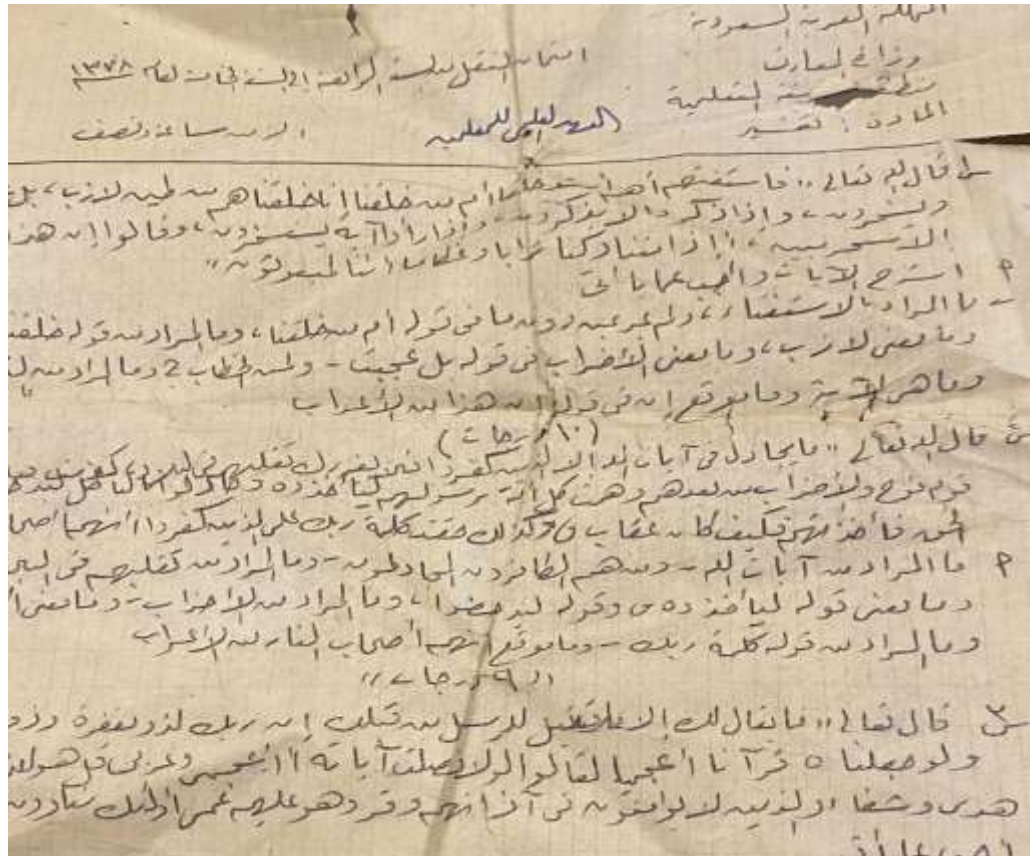 المملكة العربية السعودية
وزارة المعارف
منطقة التعليمية
المادة : تفسير
امتحان النقل من السنة الرابعة الى السنة الخامسة لعام ١٣٧٨
المعهد العلمي للمعلمين
الزمن ساعة ونصف
س١ قال الله تعالى ,, فاستفتهم أهم أشد خلقا أم من خلقنا إنا خلقناهم من طين لازب ، بل
ويسخرون ، وإذا ذكروا لا يذكرون ، وإذا رأوا آية يستسخرون ، وقالوا إن هذا
الا سحر مبين ، أإذا متنا وكنا ترابا وعظاما أئنا لمبعوثون ,,
٢ اشرح الآيات وأجب عما يأتي
ما المراد بالاستفتاء ، ولم عبر بمن دون ما في قوله أم من خلقنا ، وما المراد من قوله خلقنا
وما معنى لازب ، وما معنى الأضراب في قوله بل عجبت - ولمن الخطاب ؟ وما المراد من
وما هي الآية وما موقع إن في قوله إن هذا من الأعراب
(١٠ درجات)
س٢ قال الله تعالى ,, ما يجادل في آيات الله الا الذين كفروا فلا يغررك تقلبهم في البلاد ، كذبت قبلهم
قوم نوح والأحزاب من بعدهم وهمت كل أمة برسولهم ليأخذوه وجادلوا بالباطل ليدحضوا
الحق فأخذتهم فكيف كان عقاب ، وكذلك حقت كلمة ربك على الذين كفروا أنهم أصحاب
٢ ما المراد من آيات الله - ومن هم الكافرون المجادلون - وما المراد من تقلبهم في
وما معنى قوله ليأخذوه ، وقوله ليدحضوا ، وما المراد من الأحزاب - وما معنى
وما المراد من قوله كلمة ربك - وما موقع أنهم أصحاب النار من الأعراب
,, ٩ درجات ,,
س٣ قال تعالى ,, ما يقال لك إلا ما قد قيل للرسل من قبلك إن ربك لذو مغفرة وذو
ولو جعلناه قرآنا أعجميا لقالوا لولا فصلت آياته أأعجمي وعربي قل هو للذين
هدى وشفاء والذين لا يؤمنون في آذانهم وقر وهو عليهم عمى اولئك ينادون